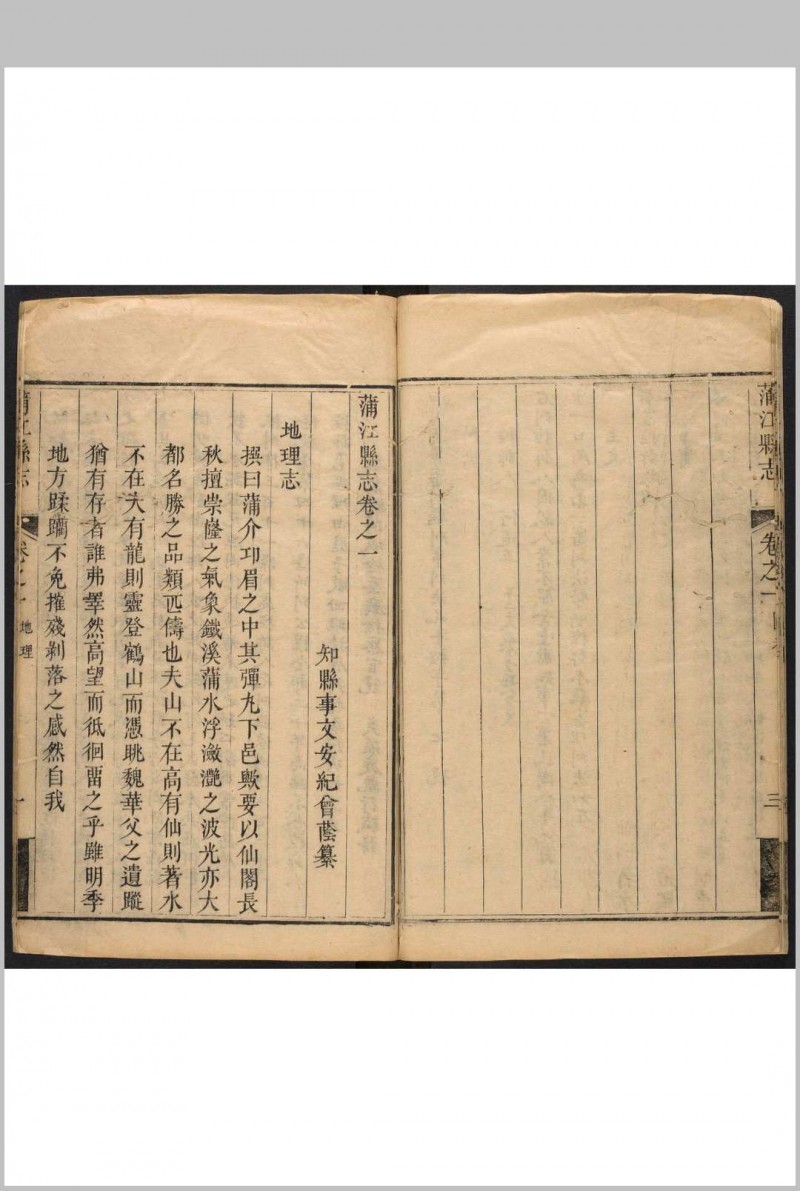 蒲江縣志
卷之一
三
蒲江縣志卷之一
知縣事文安紀曾蔭纂
地理志
撰曰蒲介邛眉之中其彈丸下邑歟要以仙閣長
秋擅崇隆之氣象鐵溪蒲水浮瀲灧之波光亦大
都名勝之品類匹儔也夫山不在高有仙則著水
不在大有龍則靈登鶴山而憑眺魏華父之遺蹤
猶有存者誰弗睾然高望而低徊畱之乎雖明季
地方蹂躪不免摧殘剝落之感然自我
蒲江縣志
卷之一
地理
一